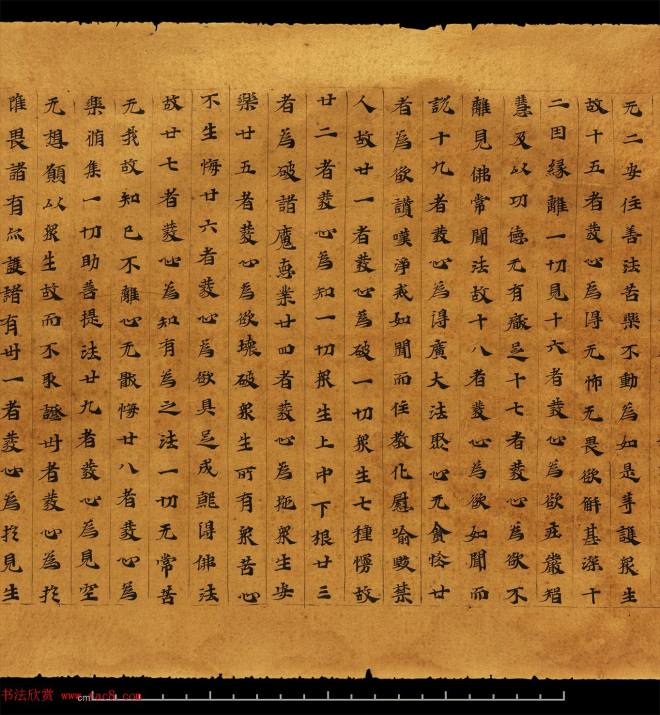 无二安住善法苦樂不動為如是等護眾生
故十五者發心為得无怖无畏欲解甚深十
二因緣離一切見十六者發心為欲㽵嚴智
慧及以功德无有厭足十七者發心為欲不
離見佛常聞法故十八者發心為欲如聞而
說十九者發心為得廣大法聚心无貪悋廿
者為欲讚嘆淨戒如聞而住教化慰喻毀禁
人故廿一者發心為破一切眾生七種慢故
廿二者發心為知一切眾生上中下根廿三
者為破諸魔惡業廿四者發心為施眾生安
樂廿五者發心為欲壞破眾生所有眾苦心
不生悔廿六者發心為欲具足成就得佛法
故廿七者發心為知有為之法一切无常苦
无我故知已不離心无厭悔廿八者發心為
樂脩集一切助菩提法廿九者發心為見空
无想願以眾生故而不取證卅者發心為於
唯畏諸有而護諸有卅一者發心為於見生
书法欣赏 www.yac8.com
cm